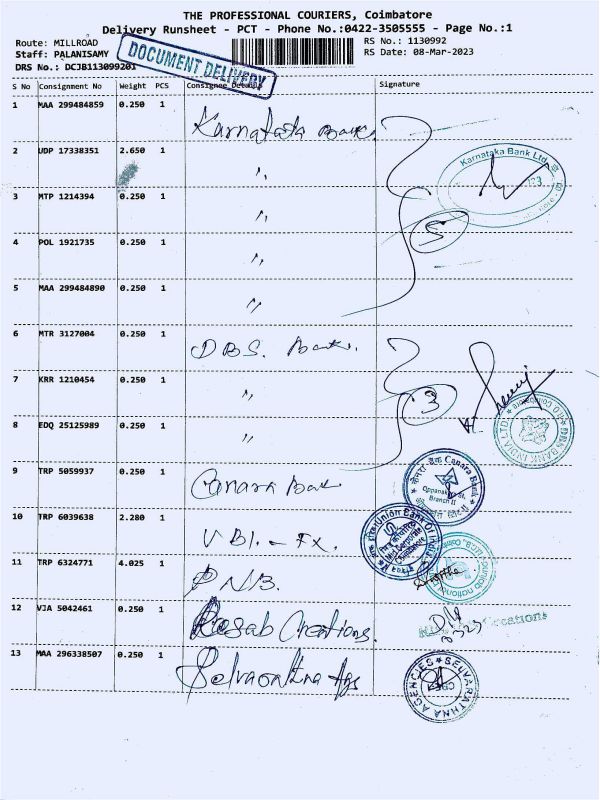 THE PROFESSIONAL COURIERS, Coimbatore
Delivery Runsheet - PCT - Phone No.:0422-3505555 - Page No.:1
Route: MILLROAD
Staff: PALANISAMY
DRS No.: DCJB113099201
DOCUMENT DELIVERY
RS No.: 1130992
RS Date: 08-Mar-2023
S No Consignment No Weight PCS Consignee Details Signature
1 MAA 299484859 0.250 1 Karnataka Bank.
2 UDP 17338351 2.650 1 "
Karnataka Bank Ltd.
3 MTP 1214394 0.250 1 "
5
4 POL 1921735 0.250 1 "
5 MAA 299484890 0.250 1 "
6 MTR 3127004 0.250 1 DBS. Bank.
7 KRR 1210454 0.250 1 "
3
8 EDQ 25125989 0.250 1 "
DBS BANK INDIA LTD
9 TRP 5059937 0.250 1 Canara Bank
केनरा बैंक Canara Bank
Branch II
10 TRP 6039638 2.280 1 UBI. - Fx.
Union Bank Of India
Mid Corporate
Coimbatore
11 TRP 6324771 4.025 1 PNB.
12 VJA 5042461 0.250 1 Creations.
Creations
13 MAA 296338507 0.250 1 Selvarathna Ags
SELVARATHNA AGENCIES
CBE